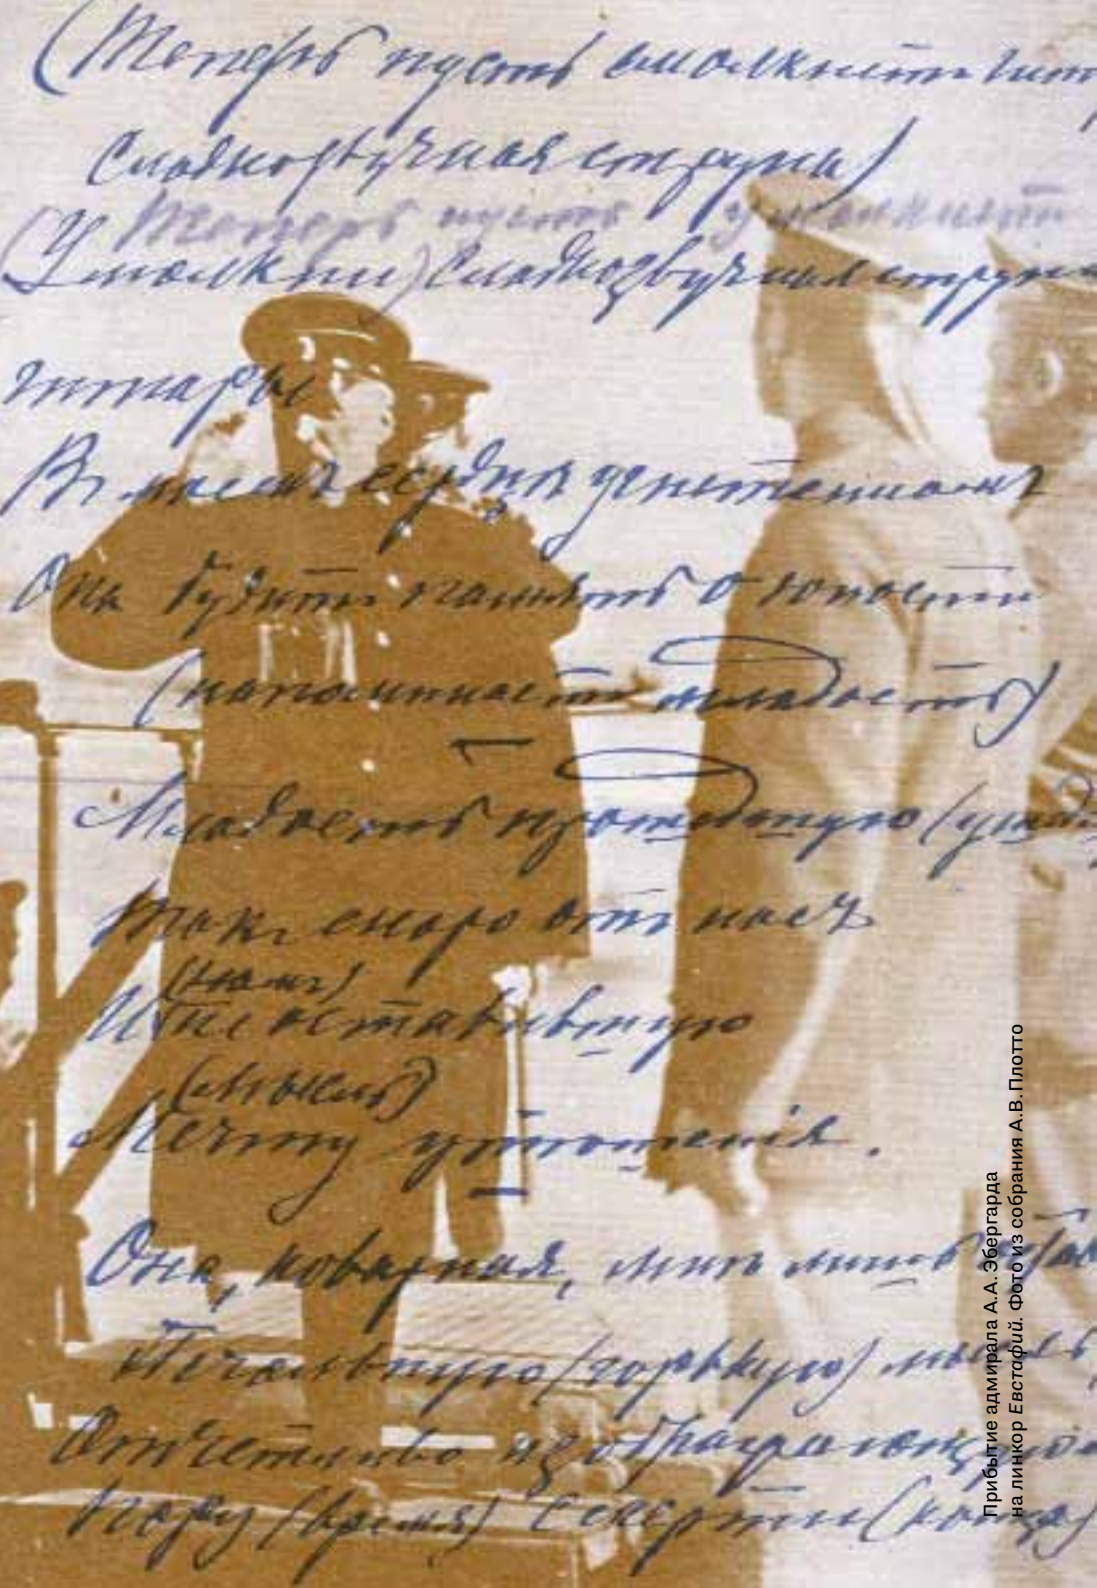 (Теперь пусть смолкнитъ гит
Сладкозвучная струна)
(Теперь пусть умолкнитъ
Умолкни) Сладкозвучная струна
гитары
Въ моемъ сердце угнетенномъ
Она будитъ память о юности
(напоминаетъ младость)
Младость прошедшую (ушед
Такъ скоро отъ насъ
(намъ)
И не оставившую
(мысль)
Мечту утѣшенія.
Она, коварная, мнѣ лишь
Печальную (горькую) мысль
Отчетливо изображающую
Пору (время) смерти (конца)
Прибытие адмирала А.А.Эбергарда
на линкор Евстафий. Фото из собрания А.В.Плотто